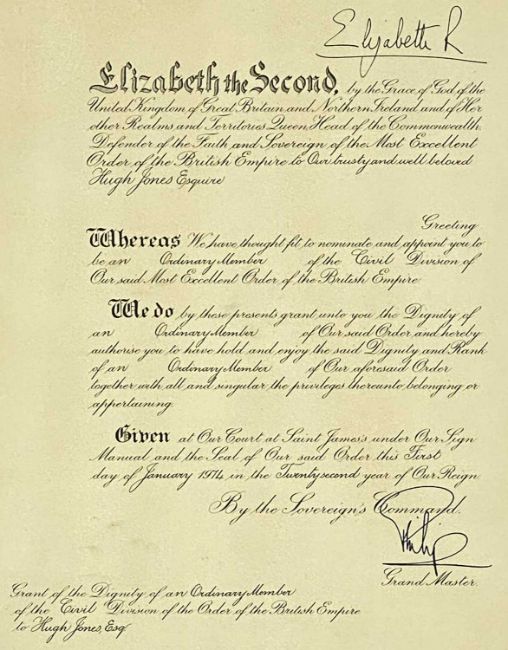 Elizabeth R
Elizabeth the Second, by the Grace of God of the
United Kingdom of Great Britain and Northern Ireland and of Her
other Realms and Territories Queen, Head of the Commonwealth,
Defender of the Faith and Sovereign of the Most Excellent
Order of the British Empire to Our trusty and well beloved
Hugh Jones Esquire
Greeting
Whereas We have thought fit to nominate and appoint you to
be an Ordinary Member of the Civil Division of
Our said Most Excellent Order of the British Empire
We do by these presents grant unto you the Dignity of
an Ordinary Member of Our said Order and hereby
authorise you to have hold and enjoy the said Dignity and Rank
of an Ordinary Member of Our aforesaid Order
together with all and singular the privileges thereunto belonging or
appertaining.
Given at Our Court at Saint James's under Our Sign
Manual and the Seal of Our said Order this First
day of January 1974 in the Twenty second year of Our Reign
By the Sovereign's Command.
Philip
Grand Master.
Grant of the Dignity of an Ordinary Member
of the Civil Division of the Order of the British Empire
to Hugh Jones, Esq.